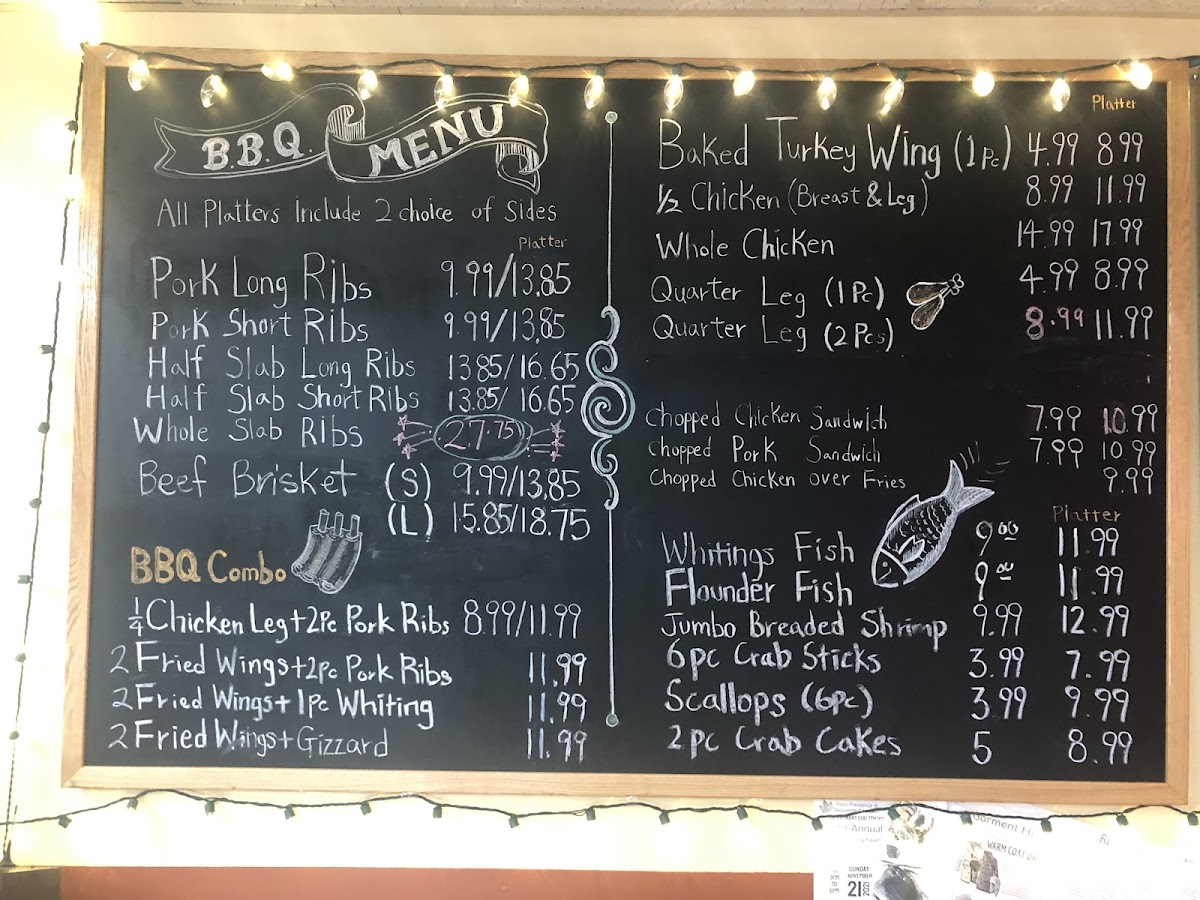 B.B.Q. MENU
All Platters Include 2 choice of Sides
Platter
Pork Long Ribs 9.99/13.85
Pork Short Ribs 9.99/13.85
Half Slab Long Ribs 13.85/16.65
Half Slab Short Ribs 13.85/16.65
Whole Slab Ribs 27.75
Beef Brisket (S) 9.99/13.85
(L) 15.85/18.75
BBQ Combo
1/4 Chicken Leg+2Pc Pork Ribs 8.99/11.99
2 Fried Wings+2Pc Pork Ribs 11.99
2 Fried Wings+1Pc Whiting 11.99
2 Fried Wings+Gizzard 11.99
Platter
Baked Turkey Wing (1Pc) 4.99 8.99
1/2 Chicken (Breast & Leg) 8.99 11.99
Whole Chicken 14.99 17.99
Quarter Leg (1Pc) 4.99 8.99
Quarter Leg (2Pcs) 8.99 11.99
Chopped Chicken Sandwich 7.99 10.99
Chopped Pork Sandwich 7.99 10.99
Chopped Chicken over Fries 9.99
Platter
Whitings Fish 9.00 11.99
Flounder Fish 9.00 11.99
Jumbo Breaded Shrimp 9.99 12.99
6pc Crab Sticks 3.99 7.99
Scallops (6pc) 3.99 9.99
2pc Crab Cakes 5 8.99
Your Presence is
Annual
WARM COAT
SUNDAY
NOVEMBER
21 2021